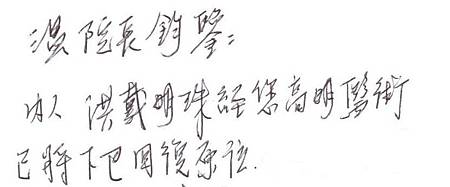 溫院長鈞鑒：
內人 洪戴明珠經您高明醫術
已將下巴回復原位.